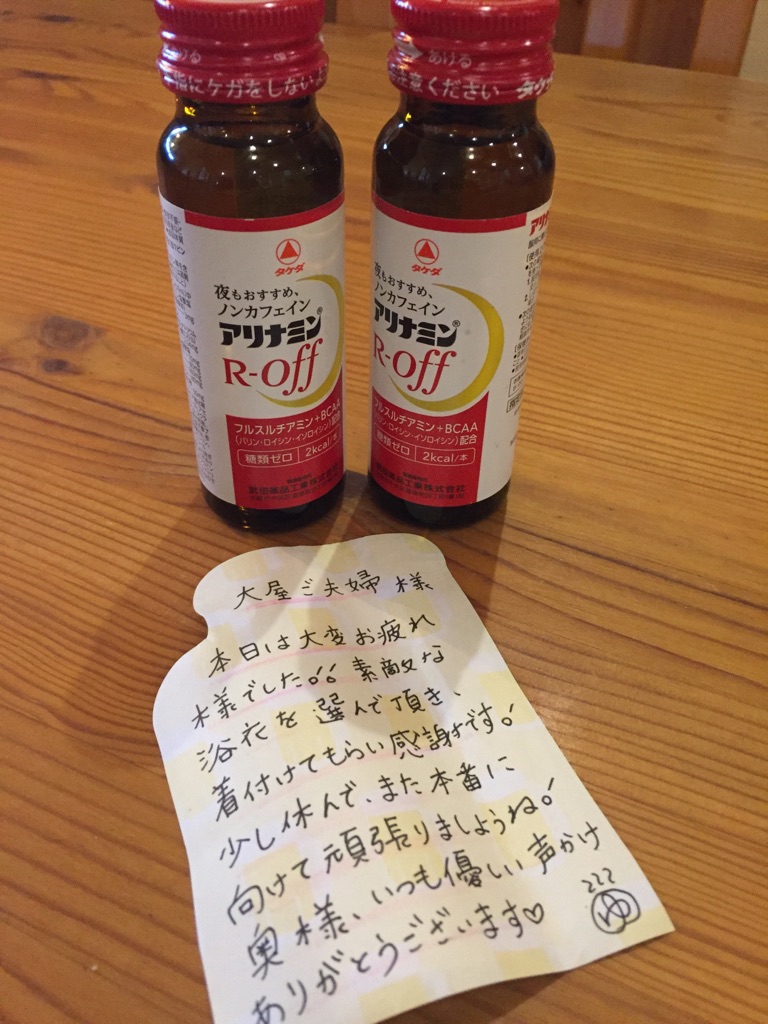 あける
指にケガをしないよ
タケダ
夜もおすすめ、
ノンカフェイン
アリナミン®
R-off
フルスルチアミン+BCAA
(バリン・ロイシン・イソロイシン)配合
糖類ゼロ 2kcal/本
武田薬品工業株式会社
あける
注意ください タケダ
タケダ
夜もおすすめ、
ノンカフェイン
アリナミン®
R-off
フルスルチアミン+BCAA
(バリン・ロイシン・イソロイシン)配合
糖類ゼロ 2kcal/本
武田薬品工業株式会社
大屋ご夫婦様
本日は大変お疲れ
様でした!! 素敵な
浴衣を選んで頂き、
着付けてもらい感謝です!
少し休んで、また本番に
向けて頑張りましょうね!
奥様、いつも優しい声かけ
ありがとうございます♡
222
ゆ